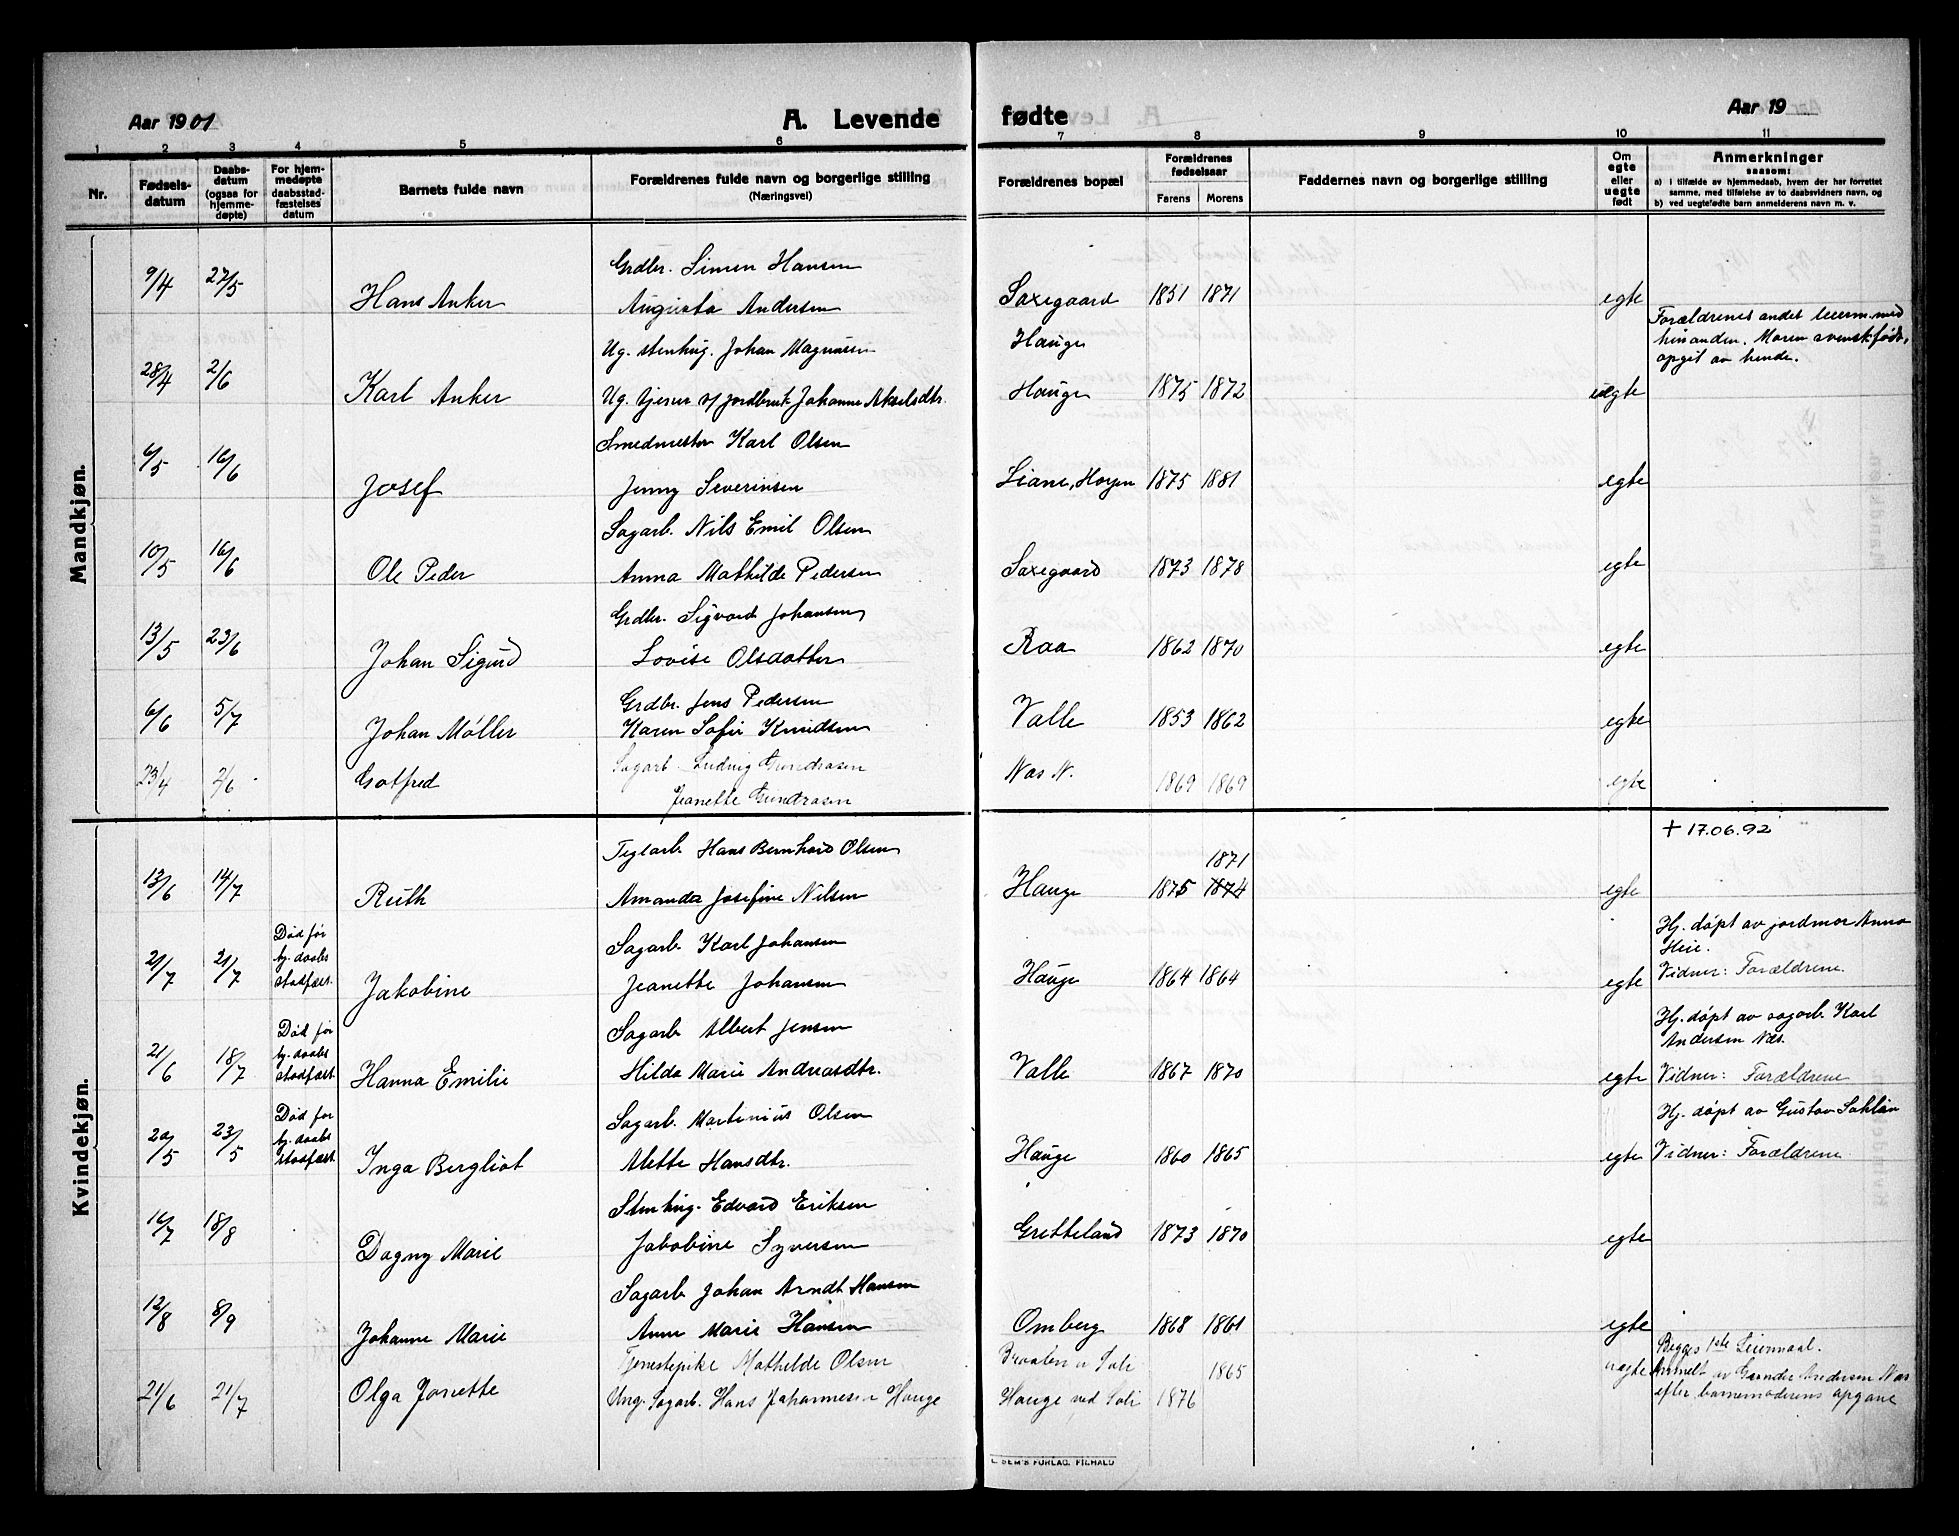 Aar 1901
A. Levende
fødte
Aar 19
1 2 3 4 5 6 7 8 9 10 11
Nr.
Fødsels-
datum
Daabs-
datum
(ogsaa for
hjemme-
døpte)
For hjem-
medøpte
daabsstad-
fæstelses
datum
Barnets fulde navn
Forældrenes fulde navn og borgerlige stilling
(Næringsvei)
Forældrenes bopæl
Forældrenes
fødselsaar
Farens Morens
Faddernes navn og borgerlige stilling
Om
egte
eller
uegte
født
Anmerkninger
saasom:
a) i tilfælde av hjemmedaab, hvem der har forrettet
samme, med tilføielse av to daabsvidners navn, og
b) ved uegtefødte barn anmelderens navn m. v.
Mandkjøn.
Grdbr. Simen Hansen
9/4 27/5 Hans Anker Augusta Andersen Saxegaard 1851 1871 egte
Ug. stenhug. Johan Magnusen Hauge
Forældrenes andet leierm. med
hinanden. Moren svenskfødt,
opgit av hende.
28/4 2/6 Karl Anker Ug. tjener v/ jordbruk Johanne Akselsdtr. Hauge 1875 1872 uegte
Smedmester Karl Olsen
6/5 16/6 Josef Jenny Severinsen Liane, Horgen 1875 1881 egte
Sagarb. Nils Emil Olsen
10/5 16/6 Ole Peder Anna Mathilde Pedersen Saxegaard 1873 1878 egte
Grdbr. Sigvard Johansen
13/5 23/6 Johan Sigurd Lovise Olsdatter Raa 1862 1870 egte
Grdbr. Jens Pedersen
6/6 5/7 Johan Møller Karen Sofie Knudsen Valle 1853 1862 egte
Sagarb. Ludvig Gundrosen
23/4 2/6 Gotfred Jeanette Gundrosen Nas N. 1869 1869 egte
Kvindekjøn.
+ 17.06.92
Teglarb. Hans Bernhard Olsen
1871
13/6 14/7 Ruth Amanda Josefine Nilsen Hauge 1875 1874 egte
Død før
hj. daabs
stadfæst.
Sagarb. Karl Johansen
Hj. døpt av jordmor Anna
Heie.
21/7 21/7 Jakobine Jeanette Johansen Hauge 1864 1864 egte Vidner: Forældrene.
Død før
hj. daabs
stadfæst.
Sagarb. Albert Jensen
Hj. døpt av sagarb. Karl
Andersen Næs.
21/6 18/7 Hanna Emilie Hilda Marie Andreasdtr. Valle 1867 1870 egte Vidner: Forældrene
Død før
hj. daabs
stadfæst.
Sagarb. Martinius Olsen
Hj. døpt av Gustav
20/5 23/5 Inga Bergliot Alette Hansdtr. Hauge 1860 1865 egte Vidner: Forældrene
Stenhug. Edvard Eriksen
16/7 18/8 Dagny Marie Jakobine Syversen Gretteland 1873 1870 egte
Sagarb. Johan Arndt Hansen
12/8 8/9 Johanne Marie Anne Marie Hansen Omberg 1868 1861 egte
Tjenestepike Mathilde Olsen Braaten v. Soli 1865 uegte
Begges 1ste Leiermaal.
Anmelt av Gaander Andersen Næs
efter barnemoderens opgave
21/6 21/7 Olga Janette Ung. Sagarb. Hans Johannesen Hauge Hauge ved Soli 1876
E. SEM'S FORLAG, F.HALD